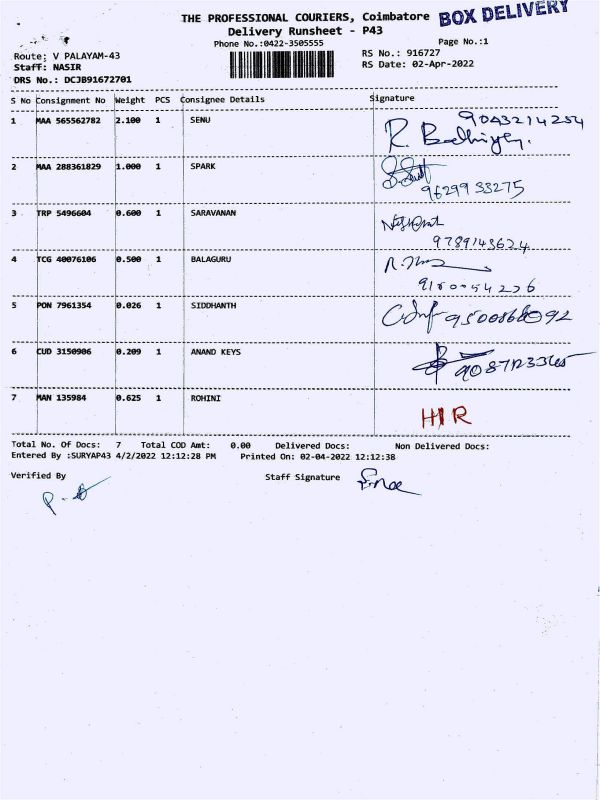 THE PROFESSIONAL COURIERS, Coimbatore
BOX DELIVERY
Delivery Runsheet - P43
Phone No.:0422-3505555
Page No.:1
Route: V PALAYAM-43
RS No.: 916727
Staff: NASIR
RS Date: 02-Apr-2022
DRS No.: DCJB91672701
S No Consignment No Weight PCS Consignee Details Signature
1 MAA 565562782 2.100 1 SENU 9043214254
2 MAA 288361829 1.000 1 SPARK
9629933275
3 TRP 5496604 0.600 1 SARAVANAN
9789143624
4 TCG 40076106 0.500 1 BALAGURU
5 PON 7961354 0.026 1 SIDDHANTH
6 CUD 3150906 0.209 1 ANAND KEYS
7 MAN 135984 0.625 1 ROHINI
Total No. Of Docs: 7 Total COD Amt: 0.00 Delivered Docs: Non Delivered Docs:
Entered By :SURYAP43 4/2/2022 12:12:28 PM Printed On: 02-04-2022 12:12:38
Verified By Staff Signature